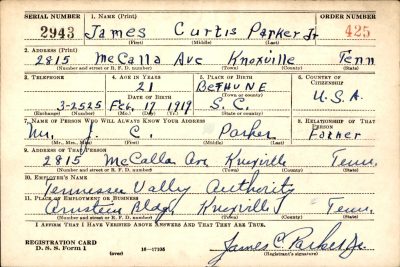 SERIAL NUMBER 1. NAME (Print) ORDER NUMBER
2943 James Curtis Parker Jr 425
(First) (Middle) (Last)
2. ADDRESS (Print)
2815 McCalla Ave Knoxville Tenn
(Number and street or R. F. D. number) (Town) (County) (State)
3. TELEPHONE 4. AGE IN YEARS 5. PLACE OF BIRTH 6. COUNTRY OF CITIZENSHIP
21 BETHUNE
DATE OF BIRTH (Town or county)
3-2525 Feb. 17 1919 S.C. U.S.A
(Exchange) (Number) (Mo.) (Day) (Yr.) (State or country)
7. NAME OF PERSON WHO WILL ALWAYS KNOW YOUR ADDRESS 8. RELATIONSHIP OF THAT PERSON
Mr. J. C. Parker Father
(Mr., Mrs., Miss) (First) (Middle) (Last)
9. ADDRESS OF THAT PERSON
2815 McCalla Ave Knoxville Tenn.
(Number and street or R. F. D. number) (Town) (County) (State)
10. EMPLOYER'S NAME
Tennessee Vally Authority
11. PLACE OF EMPLOYMENT OR BUSINESS
Arnstein Bldg. Knoxville Tenn.
(Number and street or R. F. D. number) (Town) (County) (State)
I AFFIRM THAT I HAVE VERIFIED ABOVE ANSWERS AND THAT THEY ARE TRUE.
REGISTRATION CARD
D. S. S. Form 1 (over) 16—17105 James C Parker Jr.
(Registrant's signature)